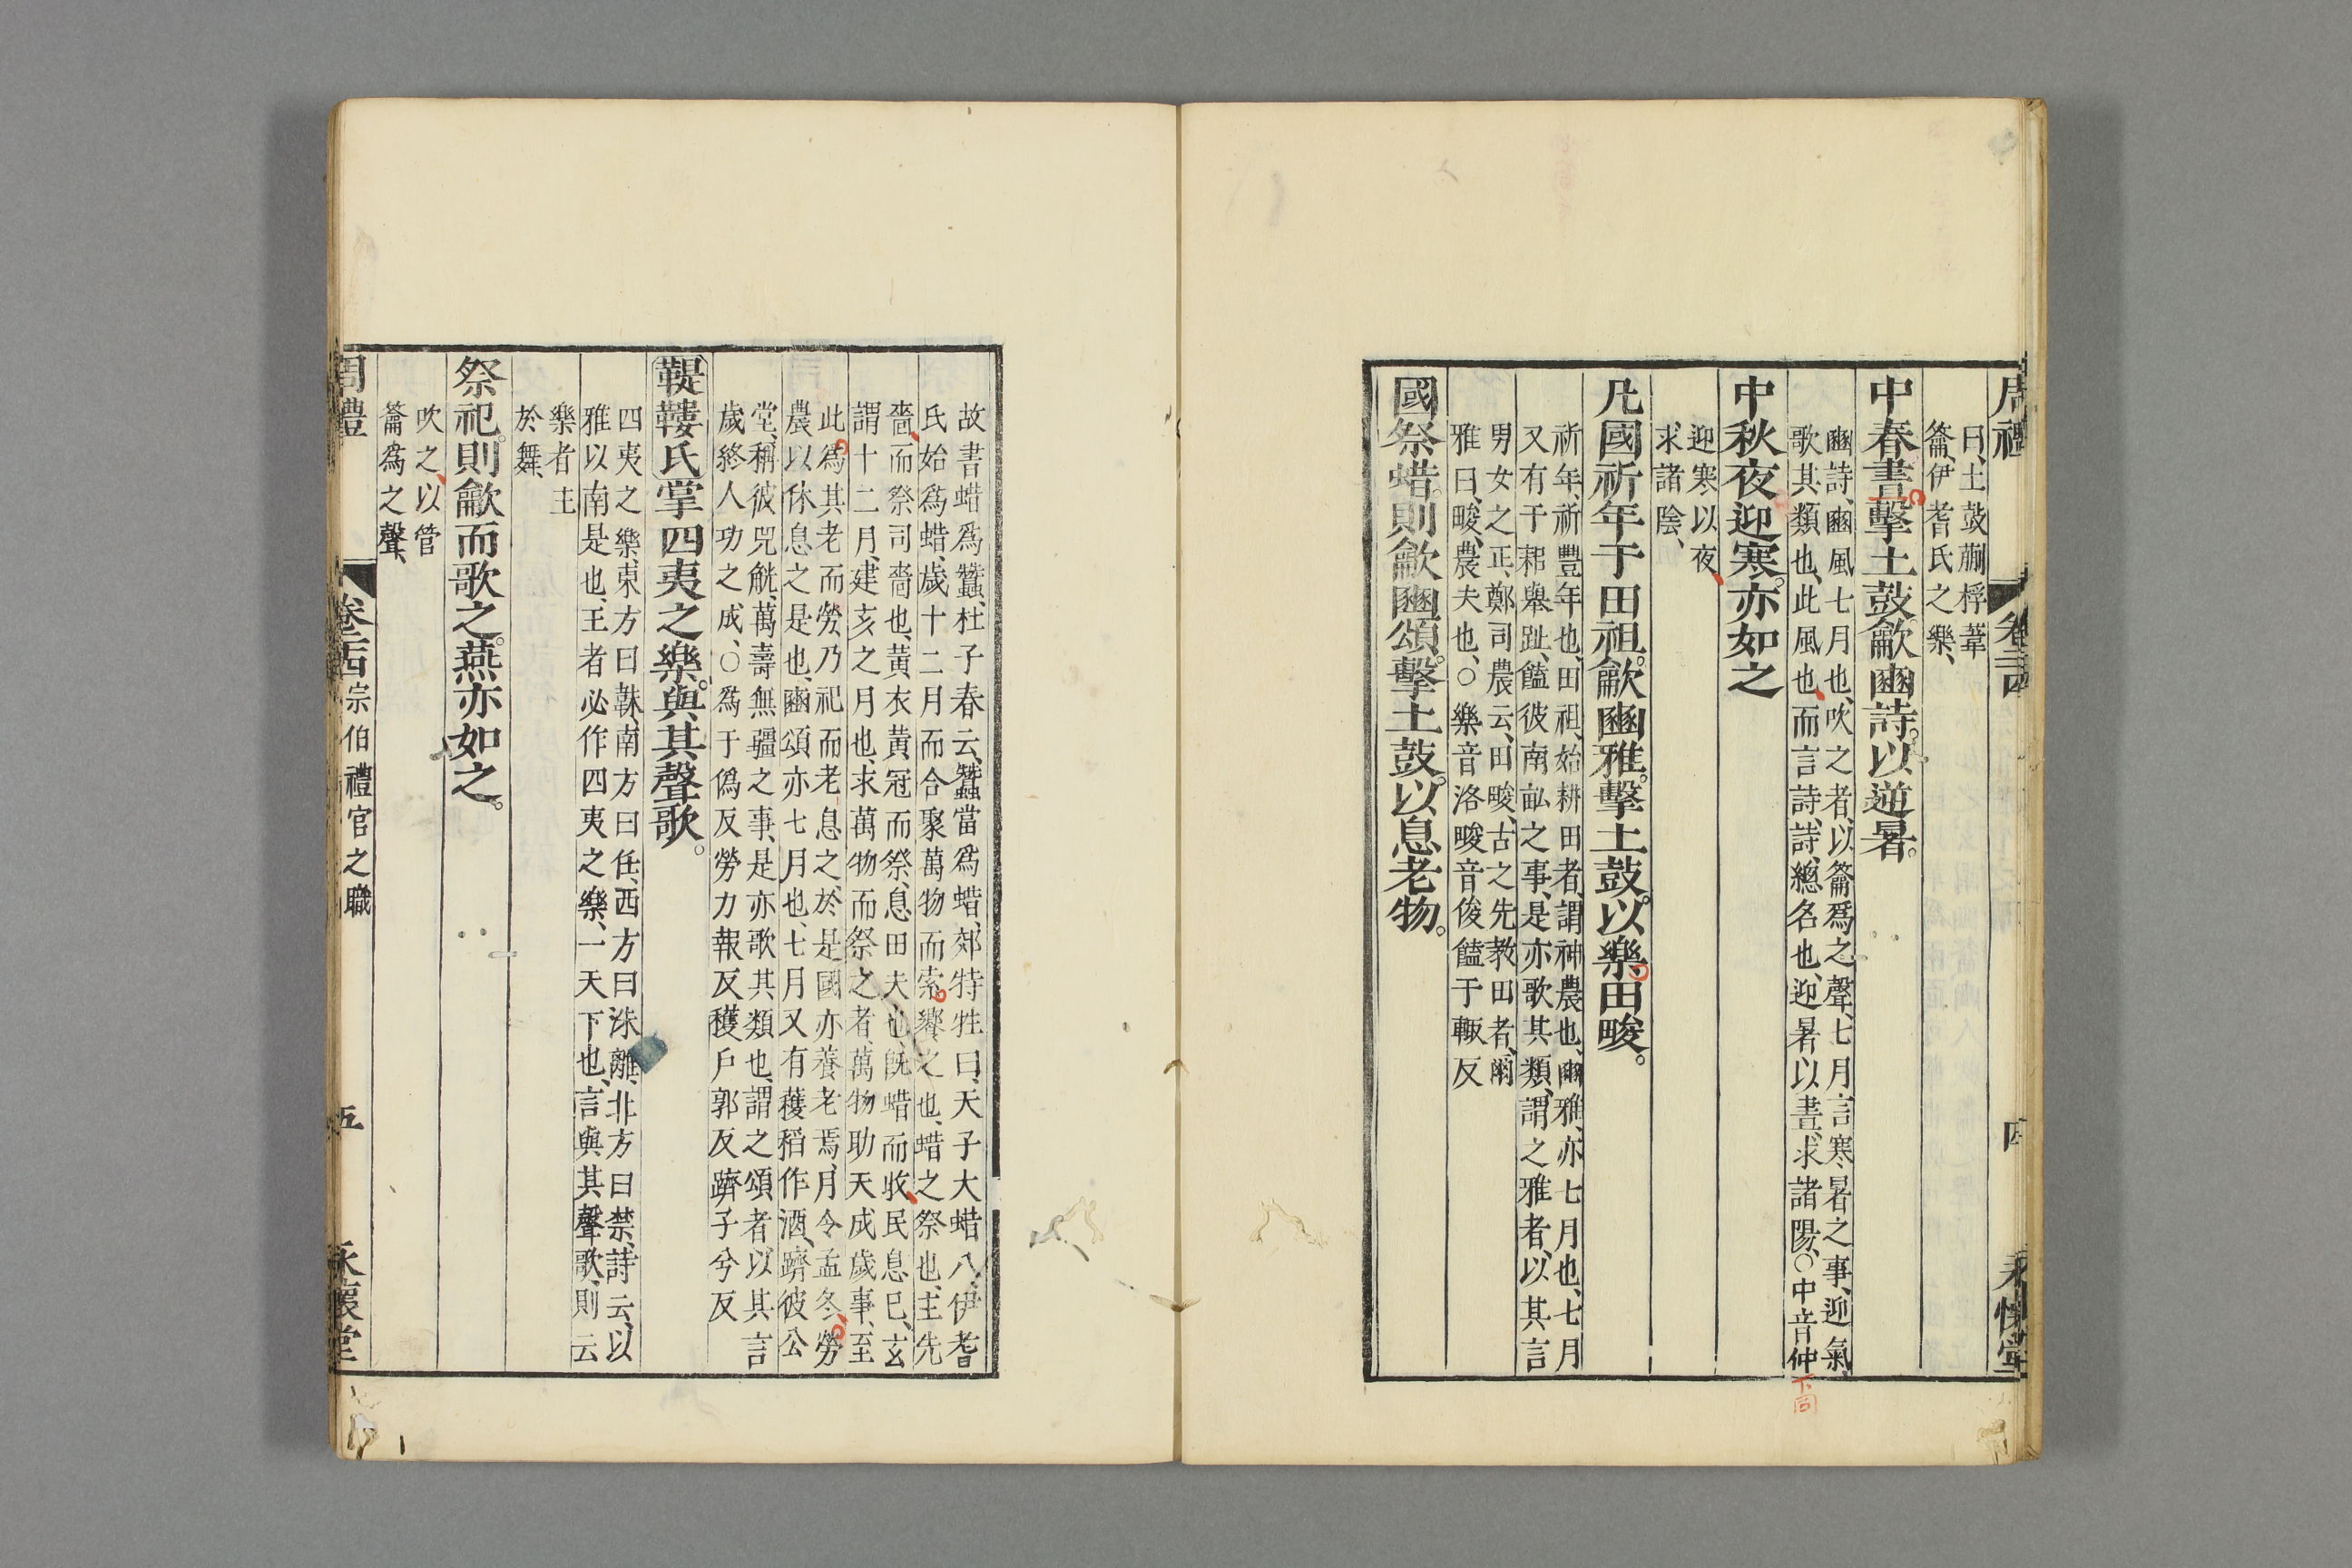 周禮 卷二十四 四 永懷堂
曰、土鼓蒯桴葦
籥、伊耆氏之樂、
中春晝擊土鼓龡豳詩。以逆暑。
豳詩、豳風七月也、吹之者、以籥爲之聲、七月言寒暑之事、迎氣
歌其類也、此風也、而言詩、詩總名也、迎暑以晝、求諸陽、○中音仲
下同
中秋夜迎寒。亦如之
迎寒以夜、
求諸陰、
凡國祈年于田祖。龡豳雅。擊土鼓。以樂田畯。
祈年、祈豐年也、田祖、始耕田者、謂神農也、豳雅、亦七月也、七月
又有于耜舉趾、饁彼南畝之事、是亦歌其類、謂之雅者、以其言
男女之正、鄭司農云、田畯、古之先教田者、爾
雅曰、畯、農夫也、○樂音洛畯音俊饁于輒反
國祭蜡。則龡豳頌。擊土鼓。以息老物。
故書蜡爲蠶、杜子春云、蠶當爲蜡、郊特牲曰、天子大蜡八、伊耆
氏始爲蜡、歲十二月而合聚萬物而索饗之也、蜡之祭也、主先
嗇、而祭司嗇也、黃衣黃冠而祭、息田夫也、旣蜡而收、民息已、玄
謂十二月、建亥之月也、求萬物而祭之者、萬物助天成歲事、至
此爲其老而勞、乃祀而老息之、於是國亦養老焉、月令孟冬、勞
農以休息之是也、豳頌亦七月也、七月又有穫稻作酒、躋彼公
堂、稱彼兕觥、萬壽無疆之事、是亦歌其類也、謂之頌者、以其言
歲終人功之成、○爲于僞反勞力報反穫戶郭反躋子兮反
鞮鞻氏掌四夷之樂。與其聲歌。
四夷之樂、東方曰韎、南方曰任、西方曰侏離、北方曰禁、詩云、以
雅以南是也、王者必作四夷之樂、一天下也、言與其聲歌、則云
樂者主
於舞、
祭祀。則龡而歌之。燕亦如之。
吹之、以管
籥爲之聲、
周禮 卷二十四 宗伯 禮官之職 五 永懷堂